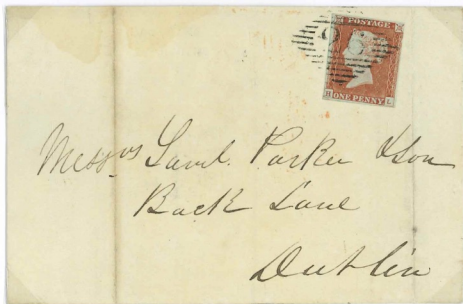 POSTAGE
ONE PENNY
Messrs Saml. Parker & Son
Back Lane
Dublin